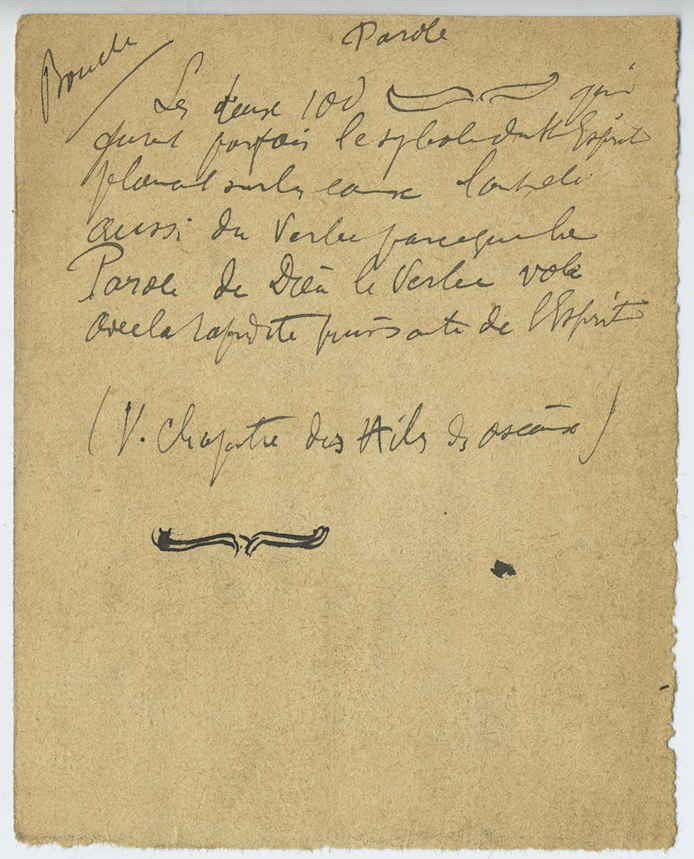 Bouche
Parole
Les deux iod qui
furent parfois le symbole du St Esprit
planant sur les eaux l'ont été
aussi du Verbe parce que la
Parole de Dieu le Verbe vole
avec la rapidité puissante de l'Esprit
(V. Chapitre des Ailes des oiseaux)